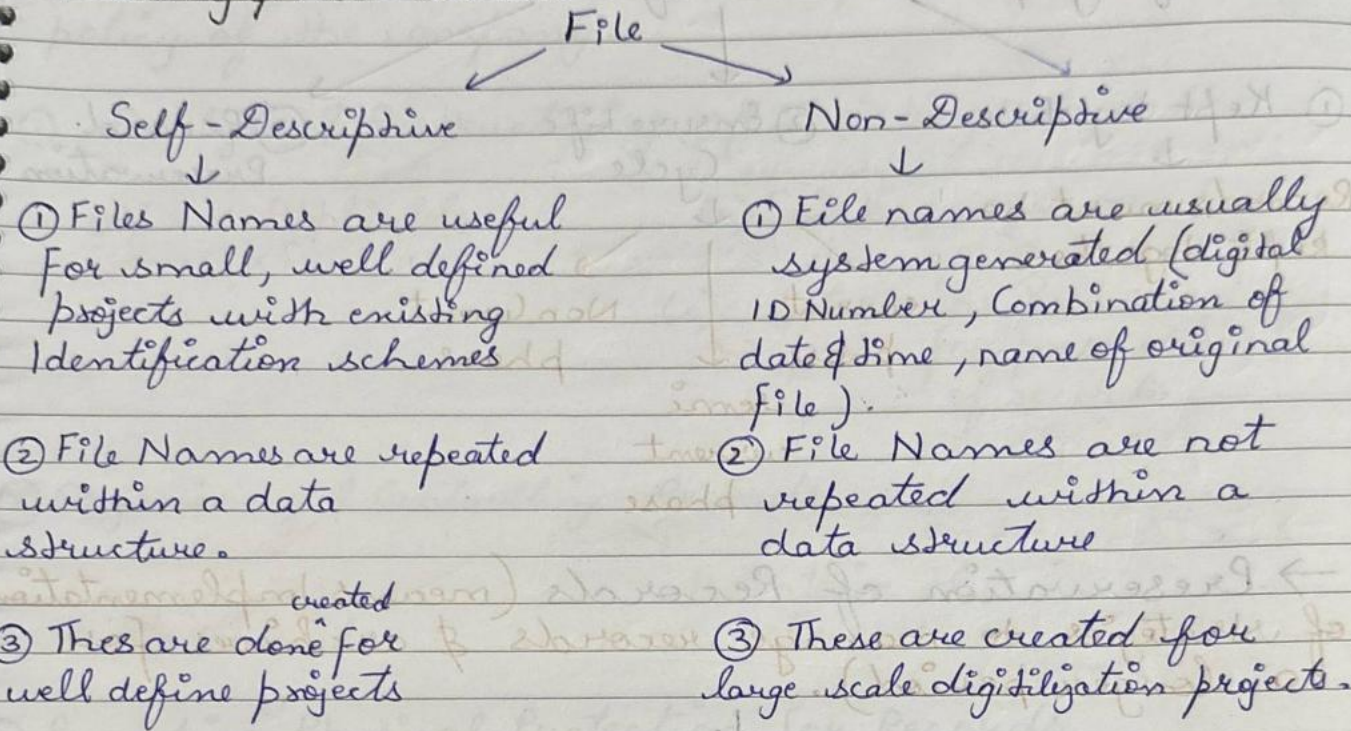 File
Self-Descriptive
Non-Descriptive
① Files Names are useful
For small, well defined
projects with existing
Identification schemes
② File Names are repeated
within a data
structure.
created
③ Thes are done ^ for
well define projects
① File names are usually
system generated (digital
ID Number, Combination of
date & time, name of original
file).
② File Names are not
repeated within a
data structure
③ These are created for
large scale digitilization project.